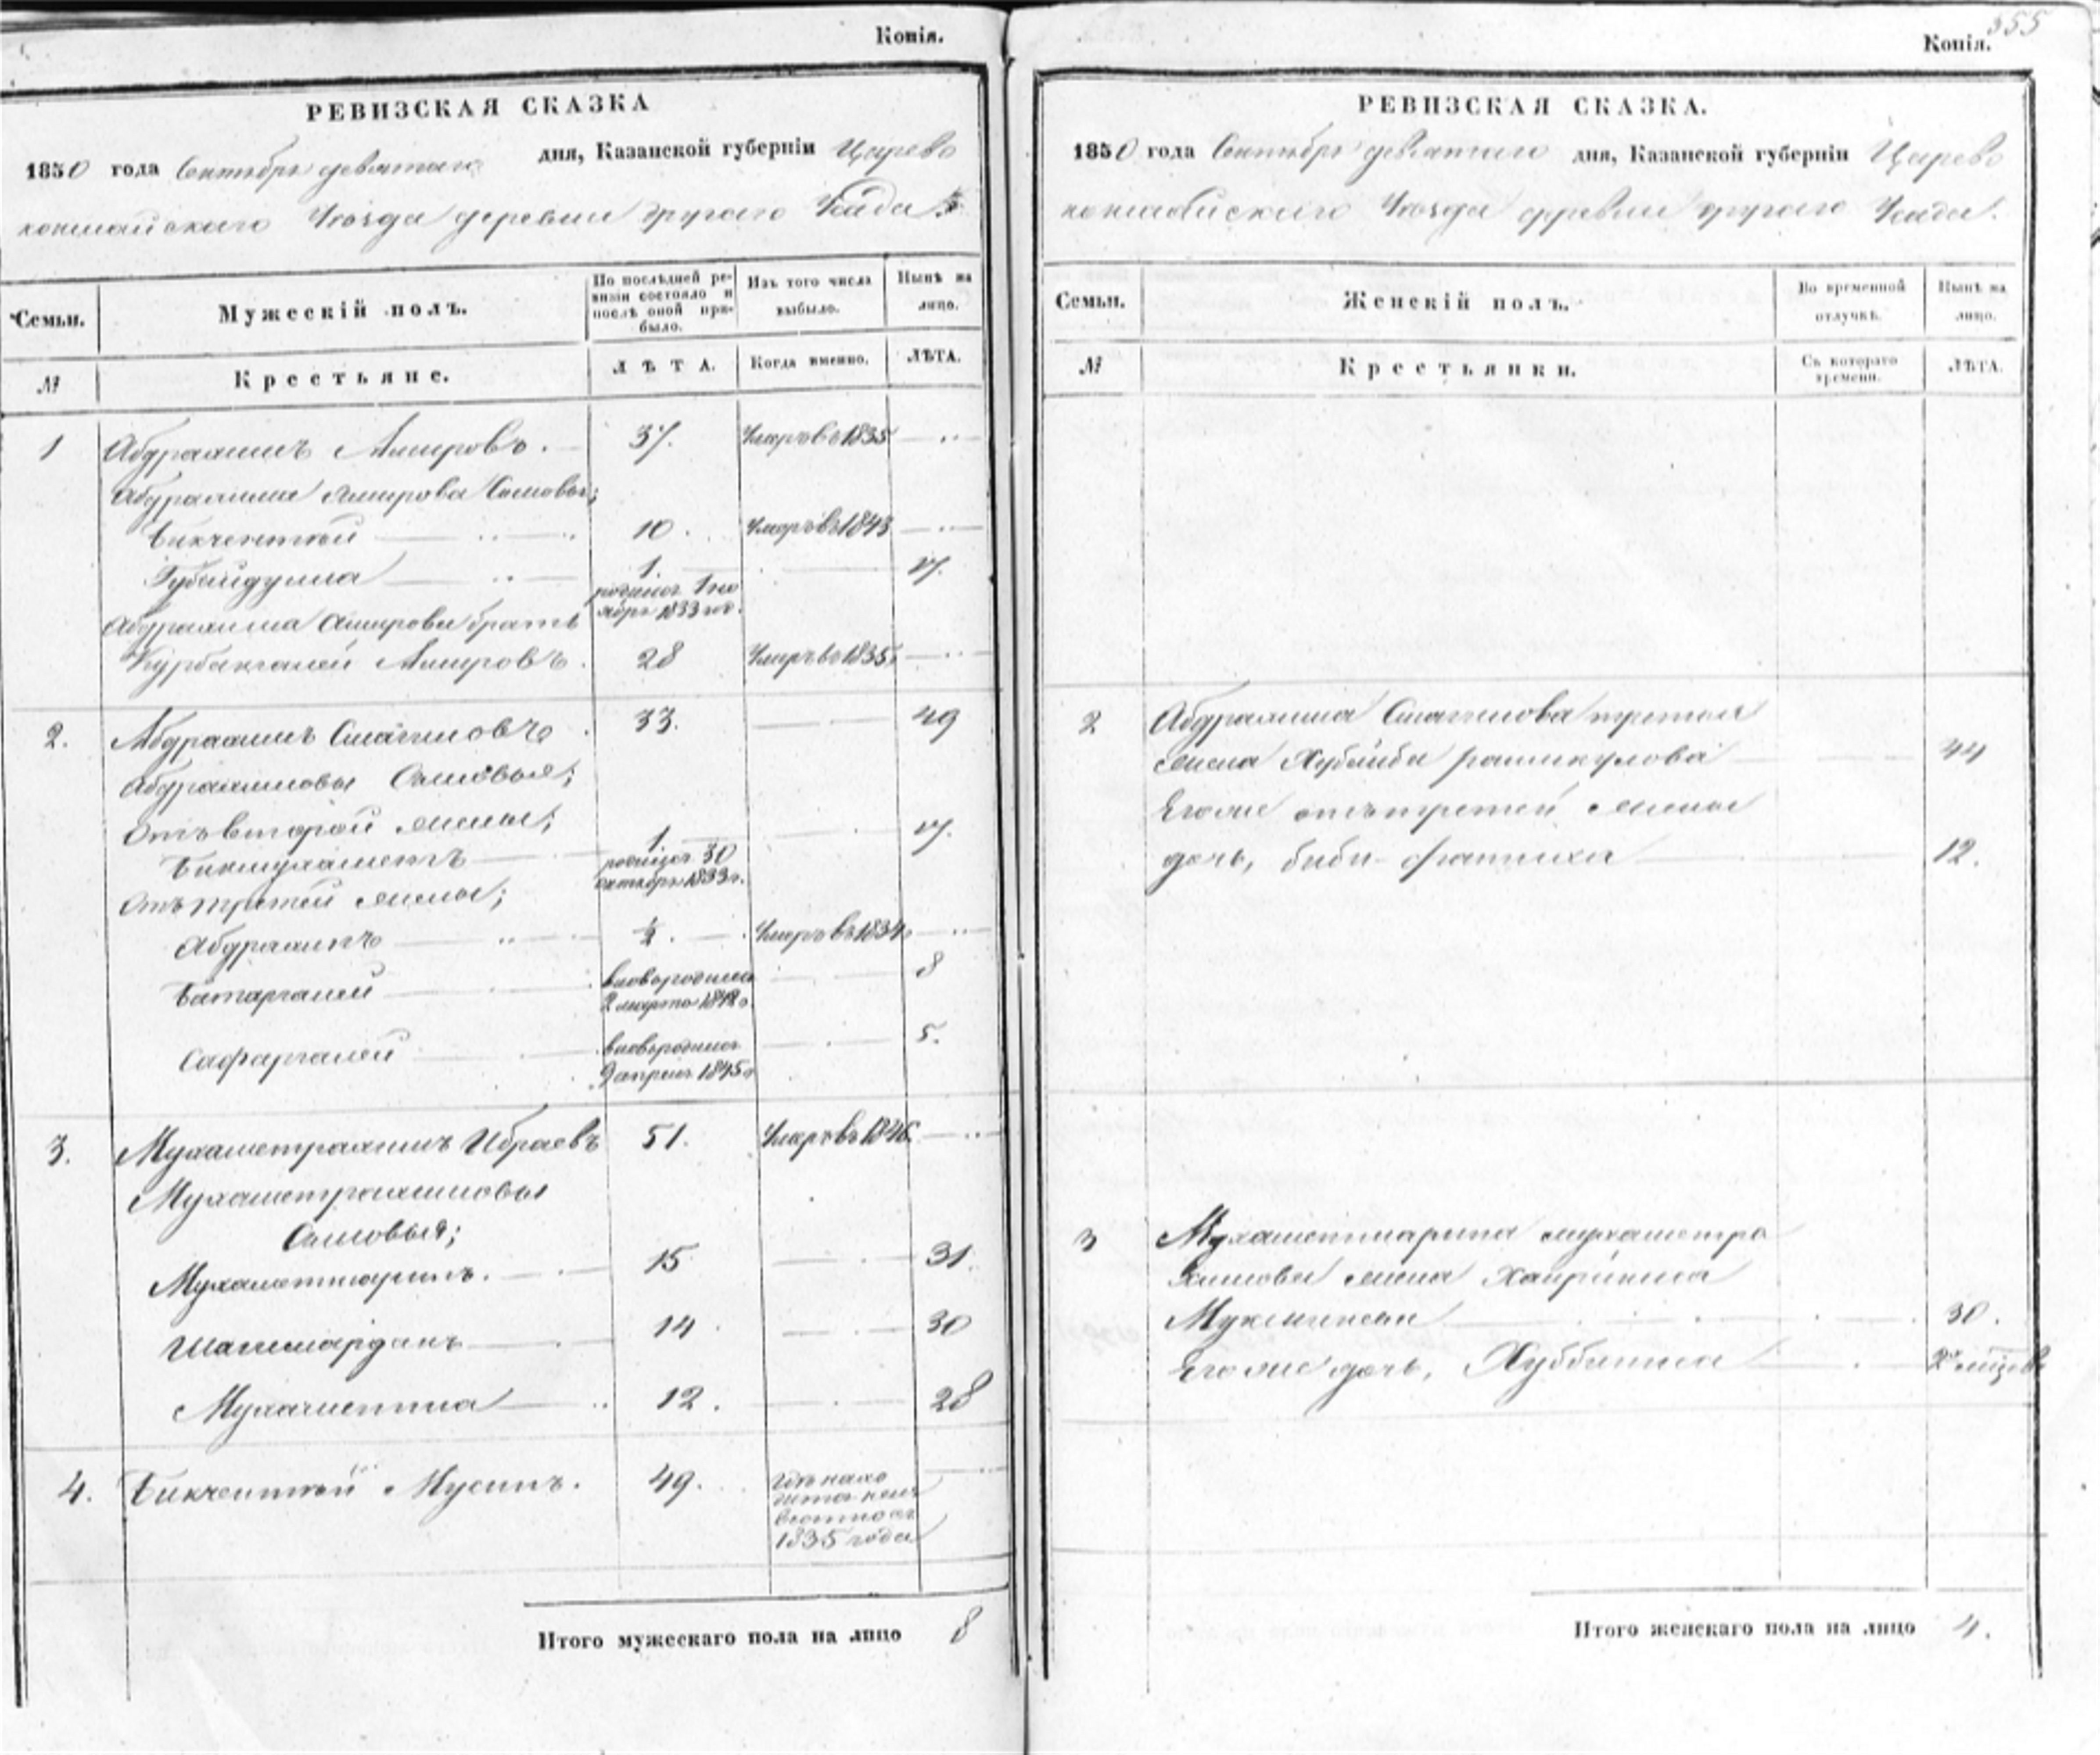 Копія.
РЕВИЗСКАЯ СКАЗКА
1850 года Сентября девятаго дня, Казанской губерніи Царево
кокшайскаго Уѣзда деревни другаго Када
Семьи. Мужескій полъ. По послѣдней ре-
визіи состояло и
послѣ оной при-
было. Изъ того числа
выбыло. Нынѣ на
лицо.
№ Крестьяне. ЛѢТА. Когда именно. ЛѢТА.
1 Абдрахимъ Амировъ. 37. Умеръ въ 1835
Абдрахима Амирова Сыновья;
Бикчентей 10. Умеръ въ 1843
Губайдулла 1. 17.
родился 1 но
ября 1833 год.
Абдрахима Амирова братъ
Курбангалей Амировъ. 28 Умеръ въ 1835
2. Абдрахимъ Смагиловъ 33. 49
Абдрахимовы Сыновья;
отъ второй жены;
Бикмухаметъ 1. 17.
родился 30
октября 1833 г.
Отъ третей жены;
Абдрахитъ ½. Умеръ въ 1834
Батаргалей вновь родился 8
2 марта 1842 г.
Сафаргалей вновь родился 5.
9 апреля 1845 г
3. Мухаметрахимъ Ибраевъ 51. Умеръ въ 1846.
Мухаметрахимовы
Сыновья;
Мухаметшарипъ. 15 31.
Шагимарданъ 14 30
Мухаметша 12. 28
4. Бикчентей Мусинъ. 49. Где нахо
дится неиз
вестно съ
1835 года
Итого мужескаго пола на лицо 8
355
Копія.
РЕВИЗСКАЯ СКАЗКА.
1850 года Сентября девятаго дня, Казанской губерніи Царево
кокшайскаго Уѣзда деревни другаго Када.
Семьи. Женскій полъ. Во временной
отлучкѣ. Нынѣ на
лицо.
№ Крестьянки. Съ котораго
времени. ЛѢТА.
2 Абдрахима Смагилова третья
жена Хубейби рашикулова 44
Его же отъ третей жены
дочь, биби-фатиха 12.
3 Мухаметшарипа мухаметра
химова жена Хайриниса
Мукминева 30.
Его же дочь, Хуббиниса 2 месяц
Итого женскаго пола на лицо 4.